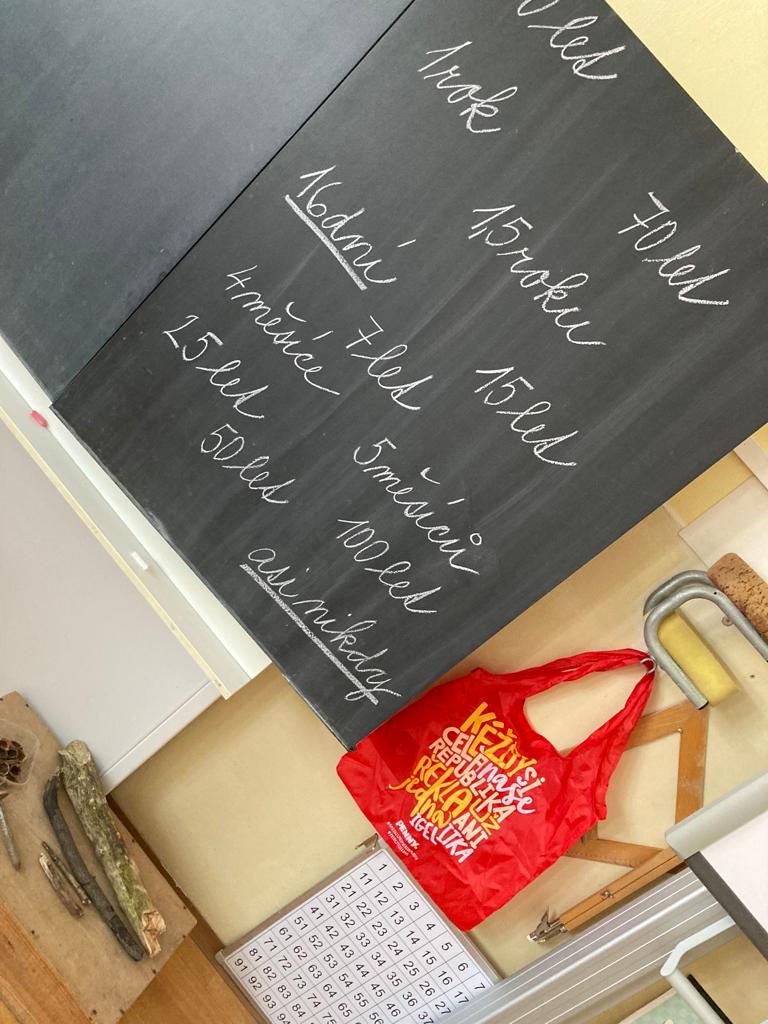 0 let
1 rok
16 dní
1,5 roku
70 let
4 měsíce
7 let
15 let
25 let
5 měsíců
50 let
100 let
asi nikdy
KÉŽBY SI
CELÁ naše
REPUBLIKA
ŘEKLA UŽ
jedna ANI
IGELITKA
PENNY.
1 2 3 4 5 6 7
11 12 13 14 15 16 17
21 22 23 24 25 26 27
31 32 33 34 35 36 37
41 42 43 44 45 46
51 52 53 54 55 56
61 62 63 64 65
71 72 73 74 75
81 82 83 84
91 92 93 94